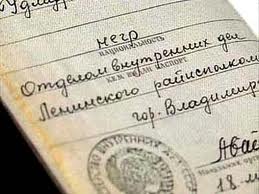 Удмур
негр
НАЦИОНАЛЬНОСТЬ
Отделом внутренних дел
КЕМ ВЫДАН ПАСПОРТ
Ленинского райисполком
гор. Владимир
ВНУТРЕННИХ
18